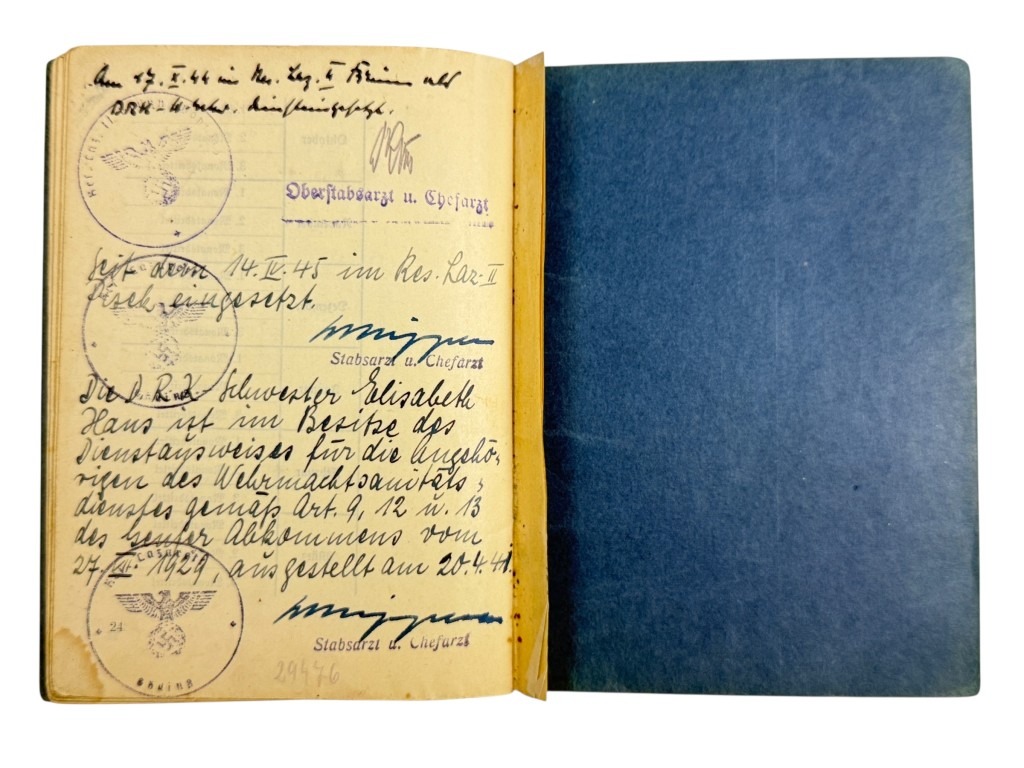 Am 27. X. 44 im Res. Laz. II Brünn als
DRK - H. Schw. dienst eingesetzt.
Oberstabsarzt u. Chefarzt
Seit dem 14. IV. 45 im Res. Laz. II
Pisek eingesetzt.
Stabsarzt u. Chefarzt
Die D. R. K - Schwester Elisabeth
Haus ist im Besitze des
Dienstausweises für die Angehö-
rigen des Wehrmachtsanitäts-
dienstes gemäß Art. 9, 12 u. 13
des Genfer Abkommens vom
27. 1929, ausgestellt am 20.4.41.
24
Stabsarzt u. Chefarzt
29476